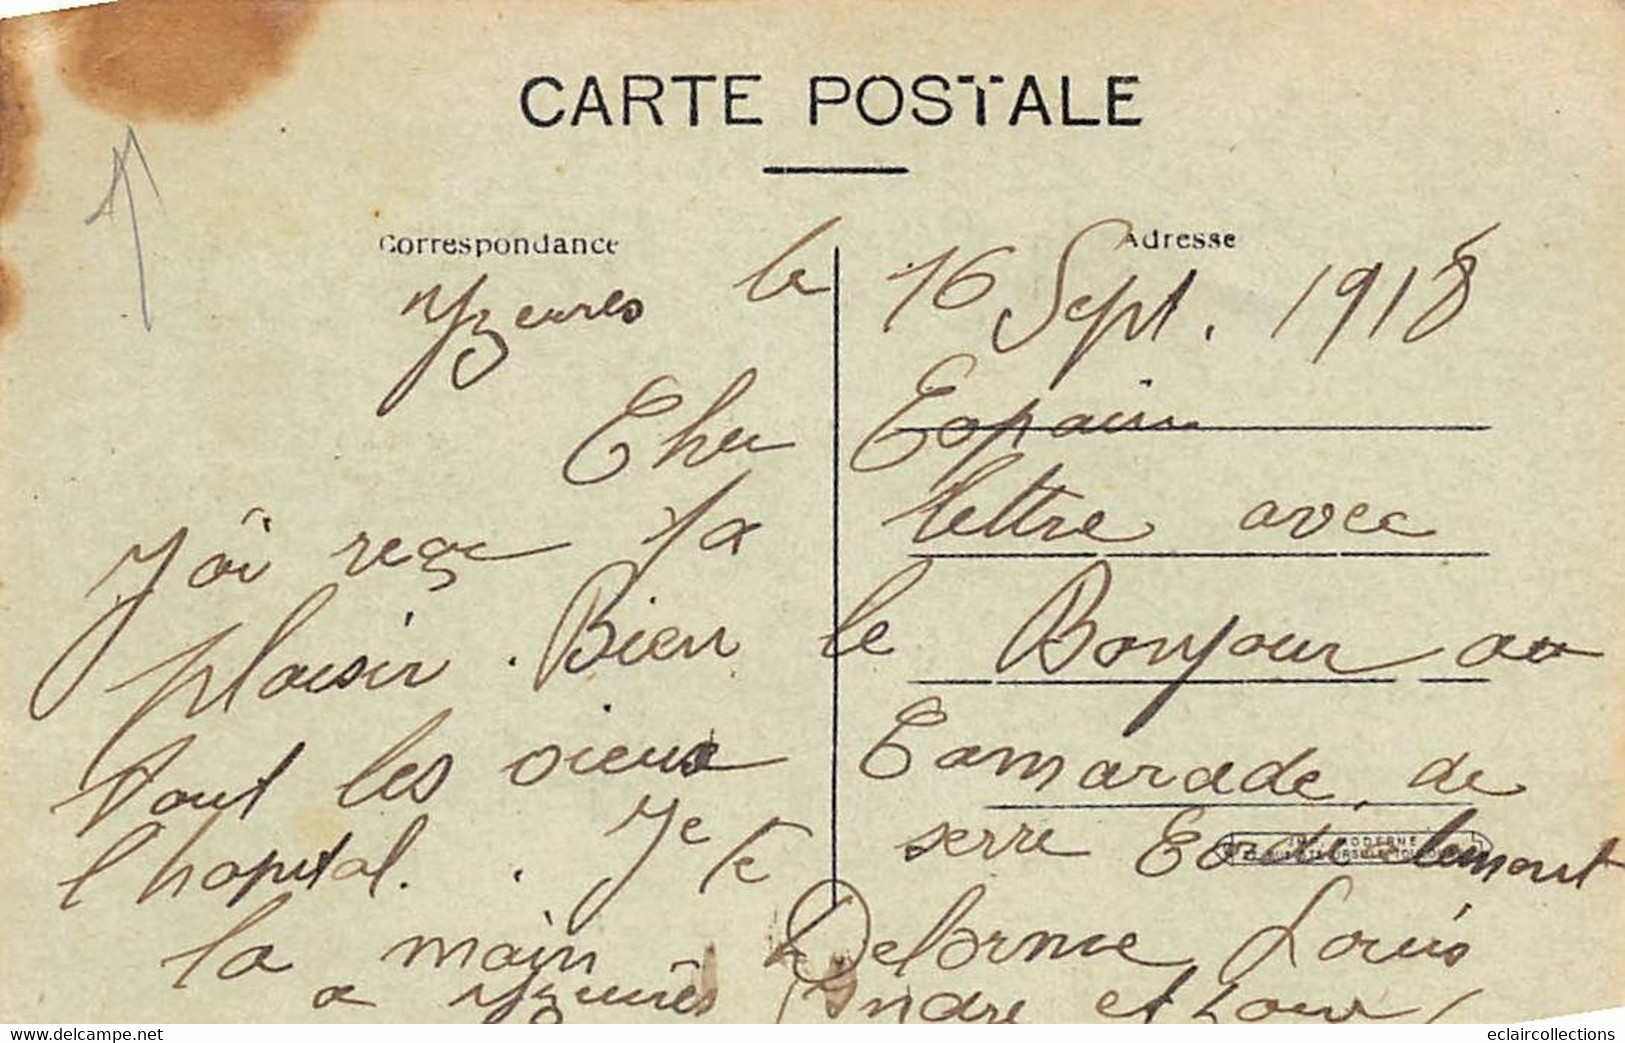 CARTE POSTALE
Correspondance
Adresse
Yzeures le 16 Sept. 1918
Cher Copain
J'ai reçu ta lettre avec
plaisir. Bien le Bonjour au
tout les vieux Camarade de
l'hopital. Je te serre Cordialement
la main Delorme Louis
a Yzeures Indre et Loire
eclaircollections